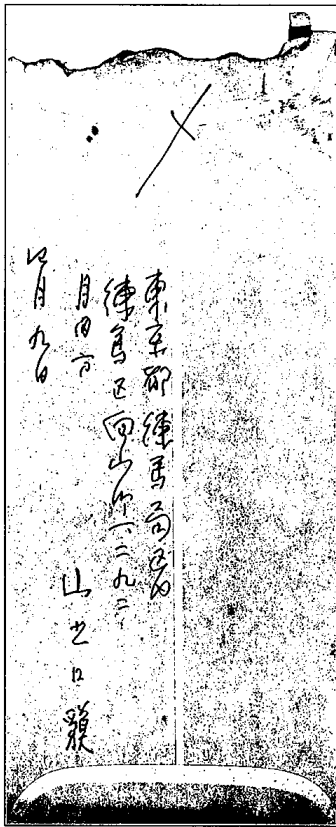 東京都練馬局区内
練馬区向山町一、二九二
月田方 山之口貘
四月九日